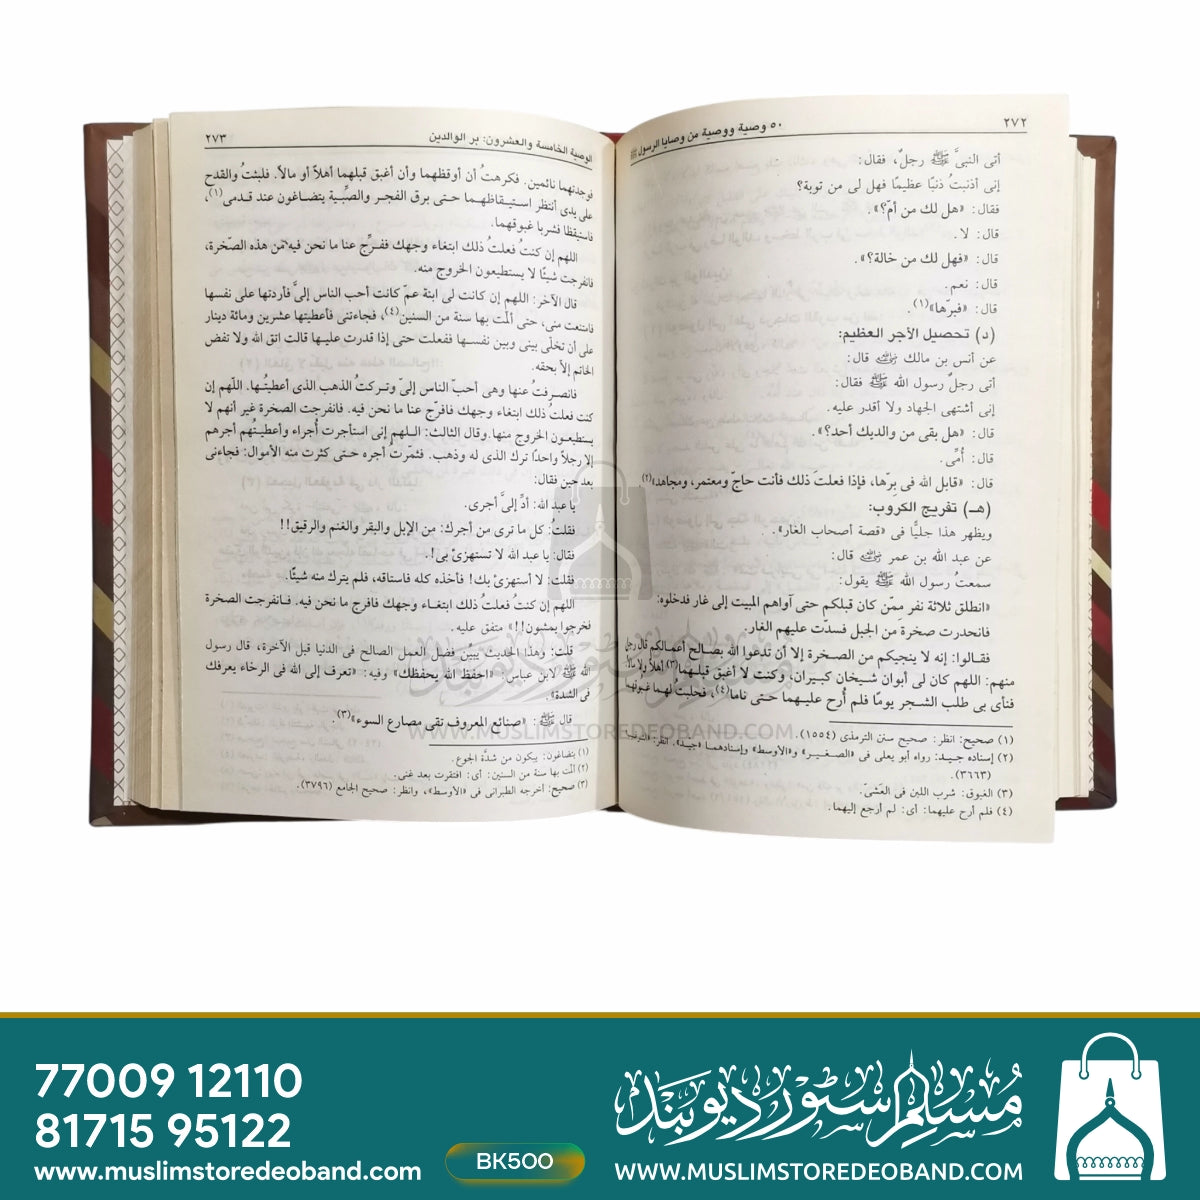 ٢٧٢
٥٠ وصية ووصية من وصايا الرسول ﷺ
أتى النبىَّ ﷺ رجلٌ، فقال:
إنى أذنبتُ ذنبًا عظيمًا فهل لى من توبة؟
فقال: «هل لك من أمّ؟».
قال: لا.
قال: «فهل لك من خالة؟».
قال: نعم.
قال: «فبرّها»(١).
(د) تحصيل الأجر العظيم:
عن أنس بن مالك رضي الله عنه قال:
أتى رجلٌ رسول الله ﷺ فقال:
إنى أشتهى الجهاد ولا أقدر عليه.
قال: «هل بقى من والديك أحد؟».
قال: أُمِّى.
قال: «قابل الله فى برّها، فإذا فعلتَ ذلك فأنت حاجّ ومعتمر، ومجاهد»(٢)
(هـ) تفريج الكروب:
ويظهر هذا جليًّا فى «قصة أصحاب الغار».
عن عبد الله بن عمر رضي الله عنهما قال:
سمعتُ رسول الله ﷺ يقول:
«انطلق ثلاثة نفر مِمّن كان قبلكم حتى آواهم المبيت إلى غار فدخلوه:
فانحدرت صخرة من الجبل فسدّت عليهم الغار.
فقـالوا: إنه لا ينجيكم من الصـخرة إلا أن تدعوا الله بصـالح أعمـالكم قال رجل
منهم: اللهم كان لى أبوان شـيخان كبـيران، وكنت لا أغبق قبلـهما(٣) أهلاً ولا مالاً
فنأى بى طلب الشـجر يومًا فلم أُرح عليـهما حتـى ناما(٤)، فحلبتُ لهما غبوقهما
(١) صحيح: انظر: صحيح سنن الترمذى (١٥٥٤).
(٢) إسناده جـيـد: رواه أبو يعلى فى «الصـغـيـر» و«الأوسط» وإسنادهمـا «جيـد». انظر:
(٣٦٦٣).
(٣) الغبوق: شرب اللبن فى العَشىّ.
(٤) فلم أرح عليهما: أى: لم أرجع إليهما.
الوصية الخامسة والعشرون: بر الوالدين
٢٧٣
فوجدتهما نائمين. فكرهتُ أن أوقظهما وأن أغبق قبلهما أهلاً أو مالاً. فلبثتُ والقدح
على يدى أنتظر استـيـقاظهـما حتـى برق الفجـر والصِّبـية يتضـاغون عند قـدمى(١)،
فاستيقظا فشربا غبوقهما.
اللهم إن كنتُ فعلتُ ذلك ابتغاء وجهك ففـرِّج عنا ما نحن فيه من هذه الصّخرة،
فانفرجت شيئًا لا يستطيعون الخروج منه.
قال الآخر: اللهم إن كانت لى ابنة عمّ كانت أحب الناس إلىَّ فأردتها على نفسها
فامتنعت منى، حتى ألمّت بها سنة من السنين(٤)، فجاءتنى فأعطيتها عشرين ومائة دينار
على أن تخلّى بينى وبين نفسـها ففعلت حتى إذا قدرت عليـها قالت اتق الله ولا تفض
الخاتم إلاّ بحقه.
فانصـرفـتُ عنها وهى أحبّ الناس إلىّ وتـركـتُ الذهب الذى أعطيتُـها. اللّهم إن
كنت فعلتُ ذلك ابتغاء وجهك فافرّج عنا ما نحن فيه. فانفرجت الصخرة غير أنهم لا
يستطيعـون الخروج منهـا. وقال الثالث: الـلهم إنى استأجرت أُجراء وأعطيـتُهم أجرهم
إلا رجلاً واحدًا ترك الذى له وذهب. فثمّرتُ أجره حتـى كثرت منه الأموال: فجاءنى
بعد حين فقال:
يا عبد الله: أدِّ إلىَّ أجرى.
فقلتُ: كل ما ترى من أجرك: من الإبل والبقر والغنم والرقيق!!
فقال: يا عبد الله لا تستهزئ بى!.
فقلت: لا أستهزئ بك! فأخذه كله فاستاقه، فلم يترك منه شيئًا.
اللهم إن كنتُ فعلتُ ذلك ابتغـاء وجهك فافرج ما نحن فيه. فـانفرجت الصخرة
فخرجوا يمشون!!» متفق عليه.
قلتُ: وهذا الحديث يبيّن فضل العمل الصالح فى الدنيا قبل الآخرة، قال رسول
الله ﷺ لابن عباس: «احفظ الله يحفظك» وفيه: «تعرف إلى الله فى الرخاء يعرفك
فى الشدة».
قال ﷺ: «صنائع المعروف تقى مصارع السوء»(٣).
(١) يتضاغون: يبكون من شدّة الجوع.
(٢) ألمّت بها سنة من السنين: أى: افتقرت بعد غنى.
(٣) صحيح: أخرجه الطبرانى فى «الأوسط»، وانظر: صحيح الجامع (٣٧٩٦).
مسلم سٹور دیوبند
WWW.MUSLIMSTOREDEOBAND.COM
77009 12110
81715 95122
www.muslimstoredeoband.com
BK500
مسلم سٹور دیوبند
WWW.MUSLIMSTOREDEOBAND.COM